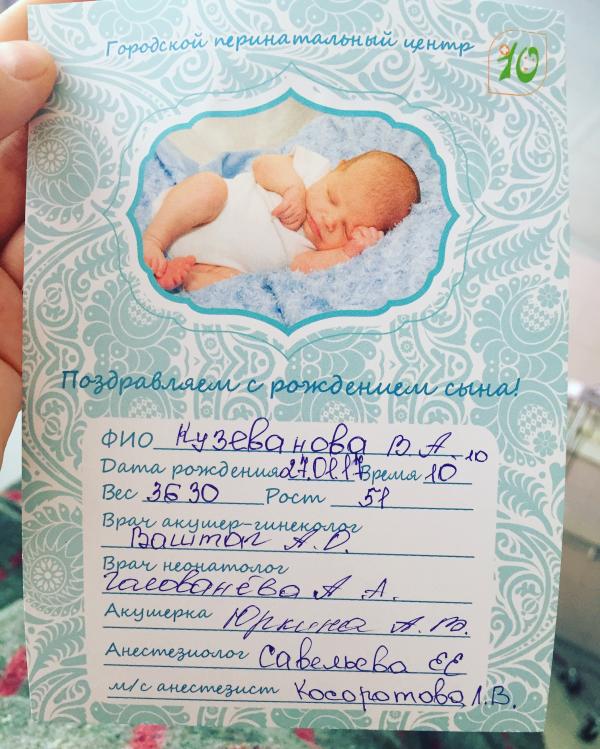 Городской перинатальный центр
10
Поздравляем с рождением сына!
ФИО Кузеванова В А
Дата рождения 27.01.17 Время 10 10
Вес 3630 Рост 51
Врач акушер-гинеколог
Ваштаг А.О.
Врач неонатолог
Голованёва А А.
Акушерка Юркина А.В.
Анестезиолог Савельева ЕЕ
м/с анестезист Косоротова Л.В.